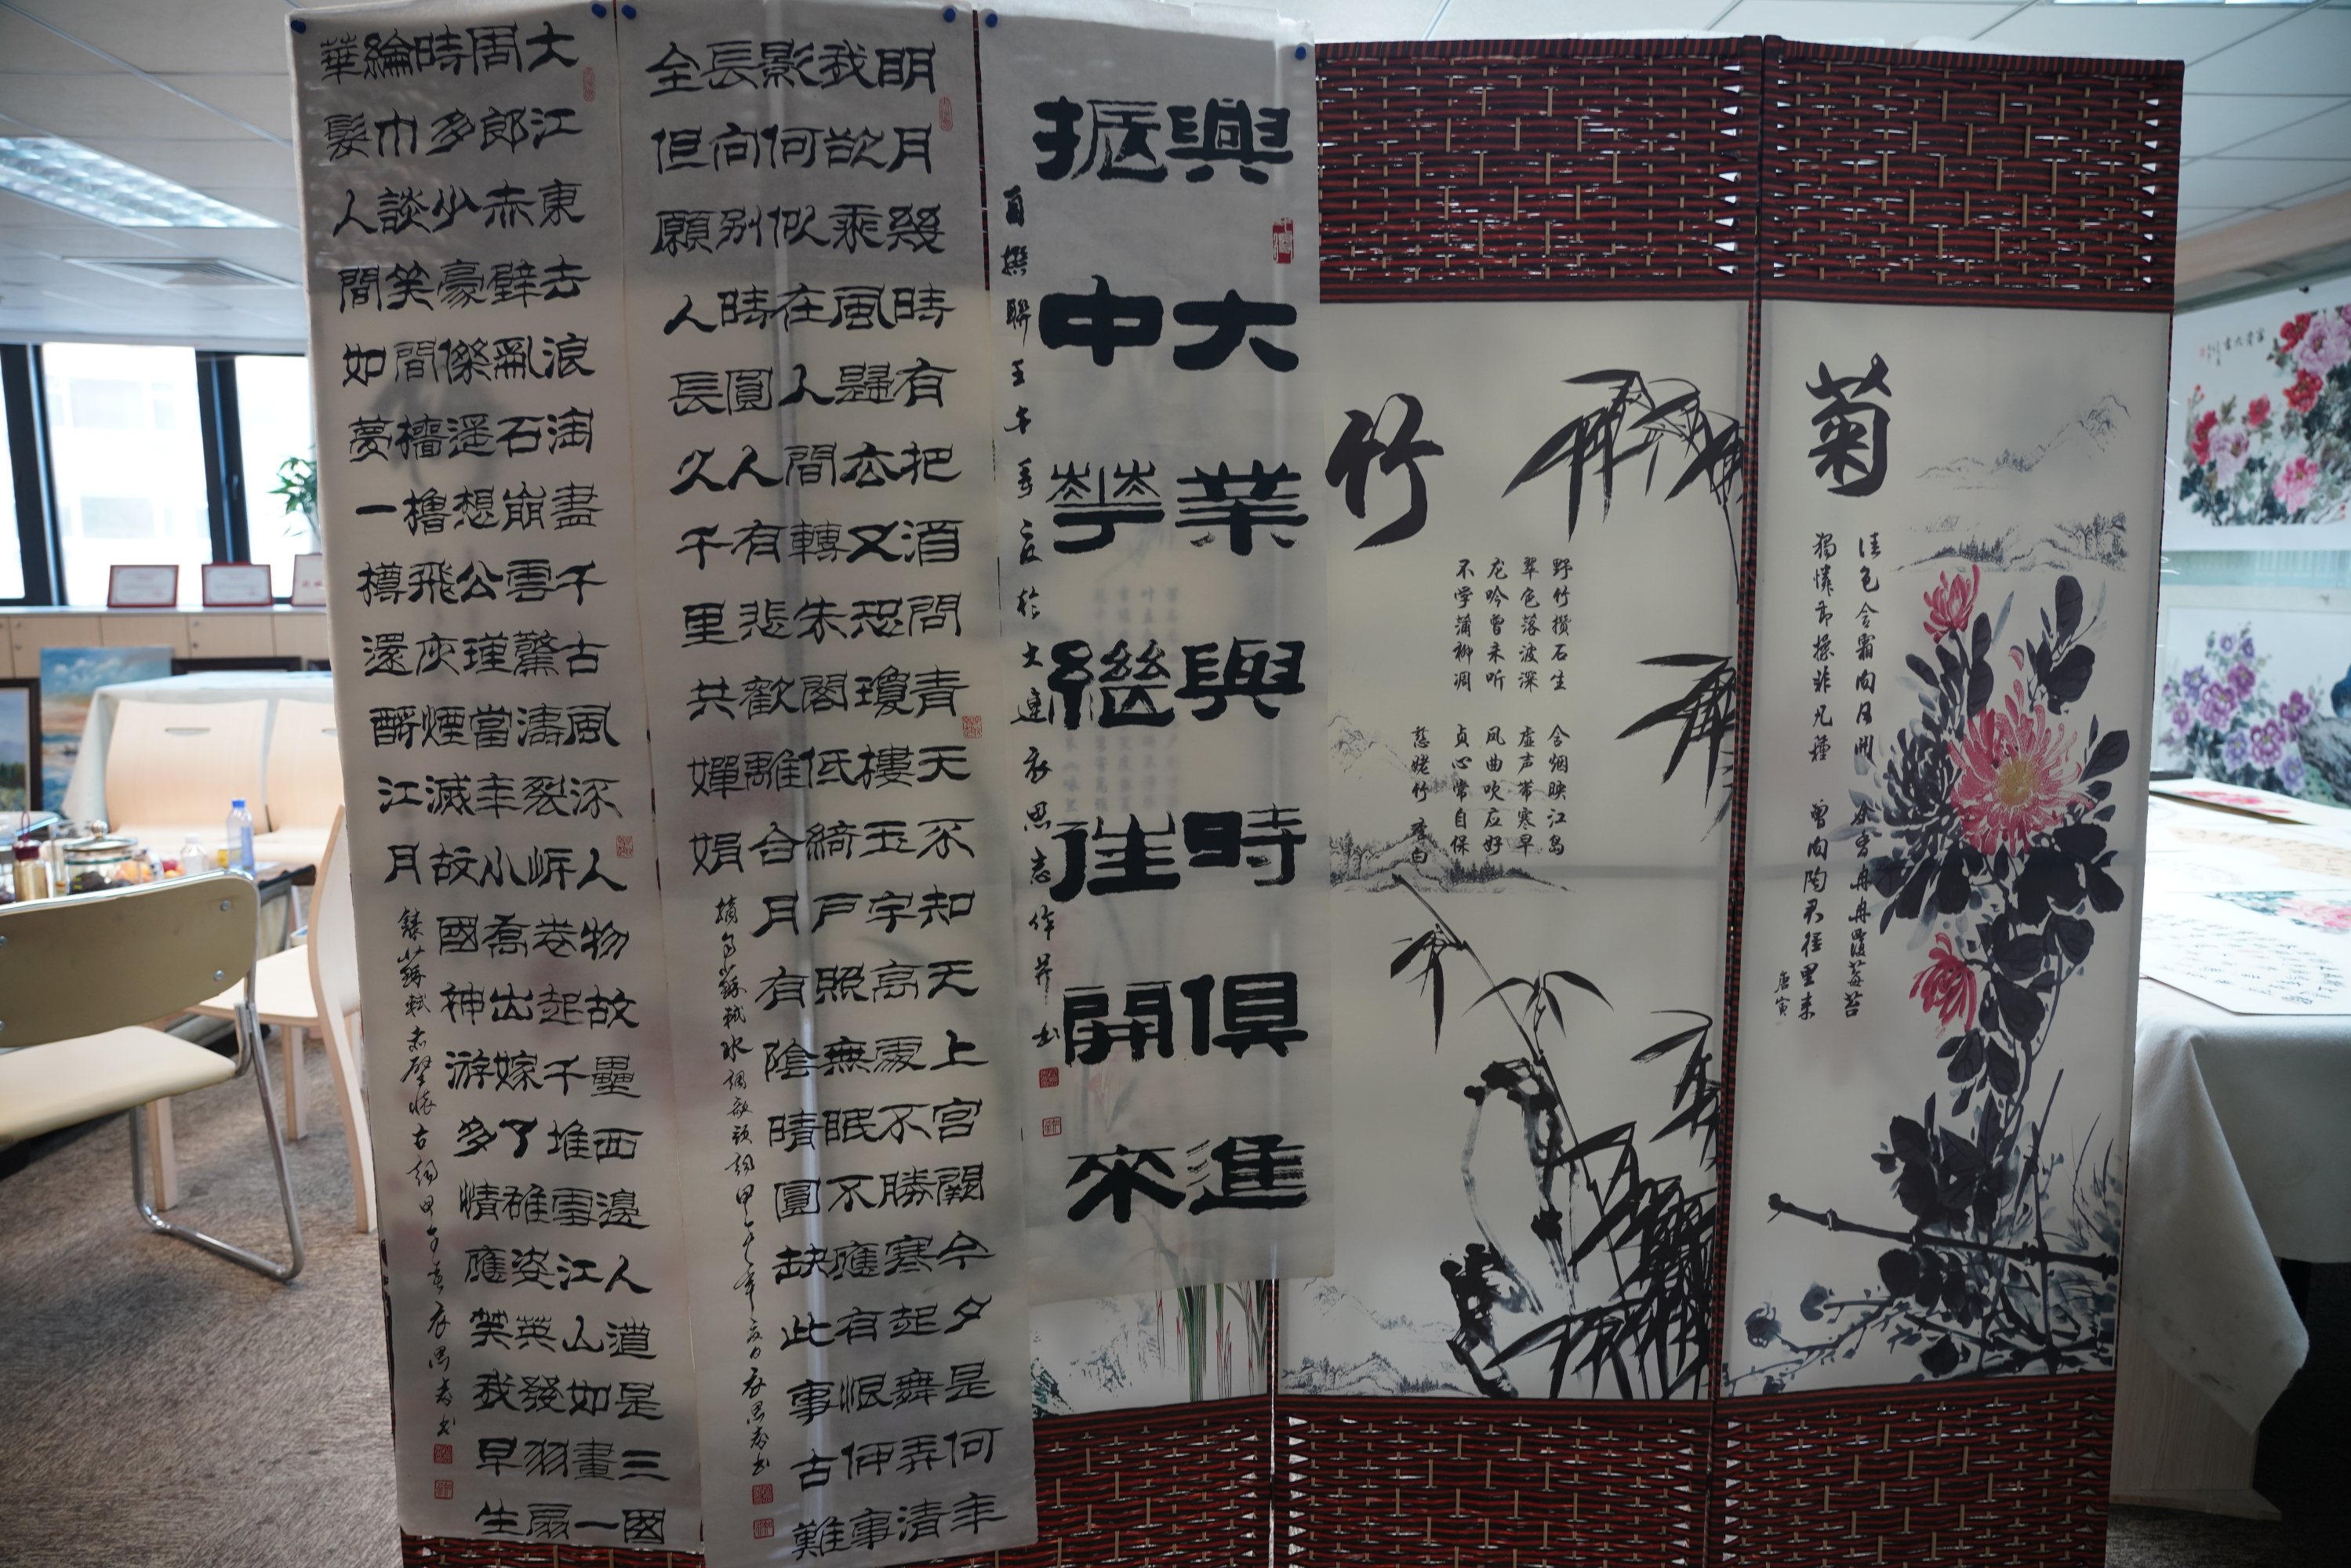 菊
佳色含霜向日開 余香冉冉覆莓苔
獨憐節操非凡種 曾向陶君徑里来
唐寅
竹
野竹攒石生 含烟映江岛
翠色落波深 虚声带寒早
龙吟曾未听 凤曲吹应好
不学蒲柳凋 贞心常自保
慈姥竹 李白
興大業興時俱進
振中華繼往開來
自撰聯壬午季夏於大連衣思志作并书
明月幾時有把酒問青天不知天上宮闕今夕是何年
我欲乘風歸去又恐瓊樓玉宇高處不勝寒起舞弄清
影何似在人間轉朱閣低綺戶照無眠不應有恨伊事
長向别時圓人有悲歡離合月有陰晴圓缺此事古難
全但願人長久千里共嬋娟
蘇軾水調歌頭詞甲午年夏日衣思志书
大江東去浪淘盡千古風流人物故壘西邊人道是三國
周郎赤壁亂石崩雲驚濤裂岸卷起千堆雪江山如畫一
時多少豪傑遥想公瑾當年小喬出嫁了雄姿英發羽扇
綸巾談笑間檣櫓飛灰煙滅故國神游多情應笑我早生
華髮人間如夢一樽還酹江月
錄蘇軾赤壁懷古詞甲午夏衣思志书